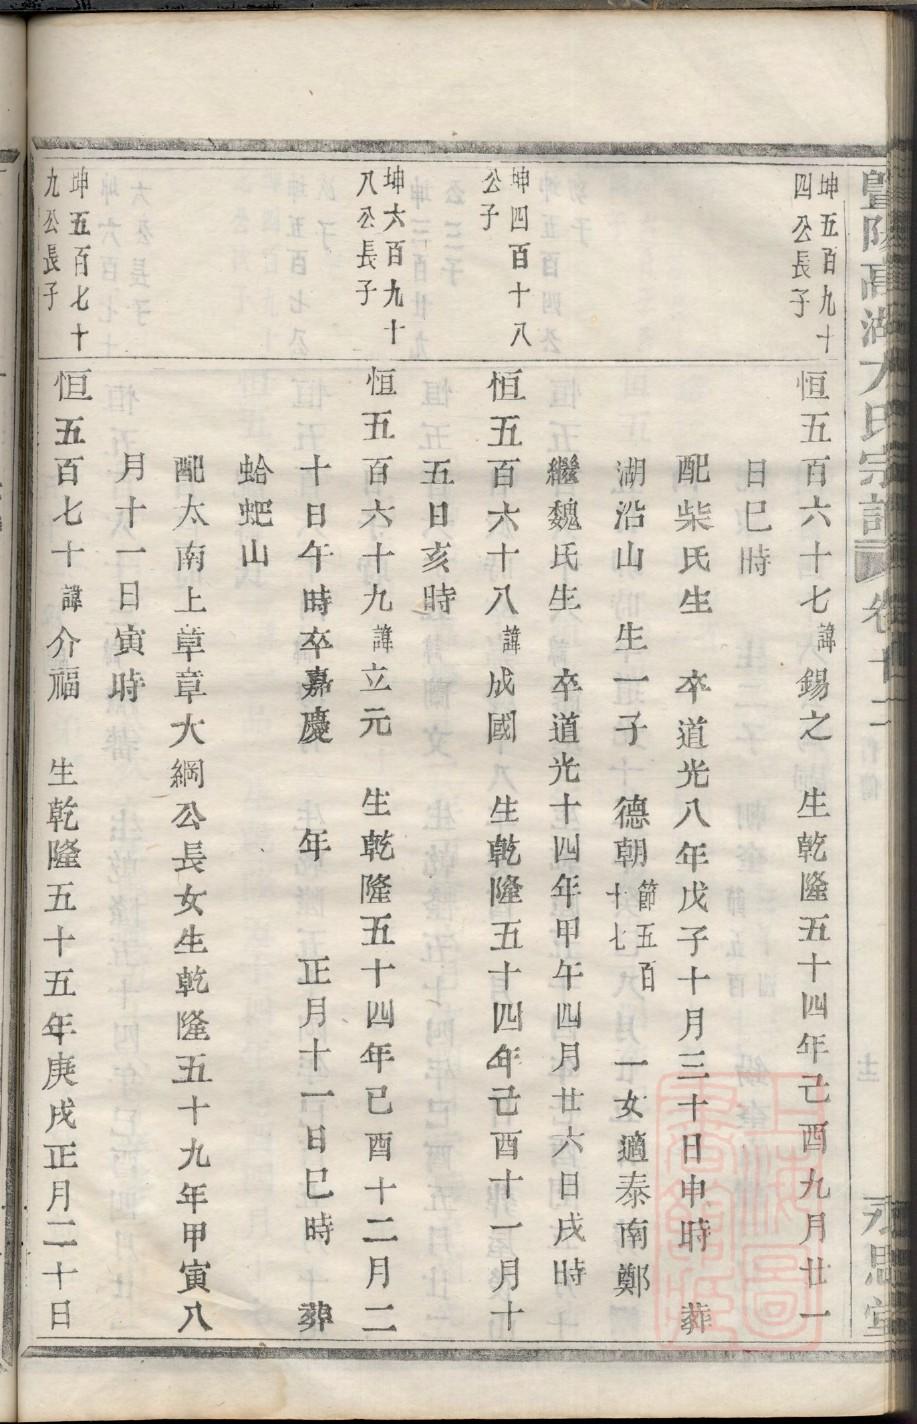 暨陽高湖 氏宗譜 卷廿二 永思堂
坤五百九十
四公長子
恒五百六十七諱錫之 生乾隆五十四年己酉九月廿一
日巳時
配柴氏生 卒道光八年戊子十月三十日申時 葬
湖沿山生一子 德朝節五百十七 一女適泰南鄭
繼魏氏生 卒道光十四年甲午四月廿六日戌時
坤四百十八
公子
恒五百六十八諱成國 生乾隆五十四年己酉十一月十
五日亥時
坤六百九十
八公長子
恒五百六十九諱立元 生乾隆五十四年已酉十二月二
十日午時卒嘉慶 年 正月十一日巳時 葬
蛤蚆山
配太南上章章大綱公長女生乾隆五十九年甲寅八
月十一日寅時
坤五百七十
九公長子
恒五百七十諱介福 生乾隆五十五年庚戌正月二十日